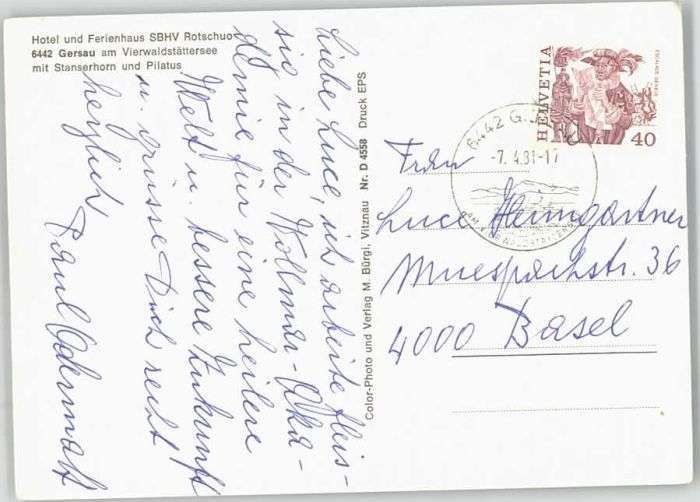 Hotel und Ferienhaus SBHV Rotschuo
6442 Gersau am Vierwaldstättersee
mit Stanserhorn und Pilatus
Liebe Luce, ich arbeite fleis-
sig in der Vollmar-Aka-
demie für eine heilere
Welt u. bessere Zukunft
u. grüsse Dich recht
herzlich
Paul Odermatt
Color-Photo und Verlag M. Bürgi, Vitznau Nr. D 4558 Druck EPS
HELVETIA
40
6442 G
-7.4.81-17
Frau
Luce Heimgartner
Muespachstr. 36
4000 Basel